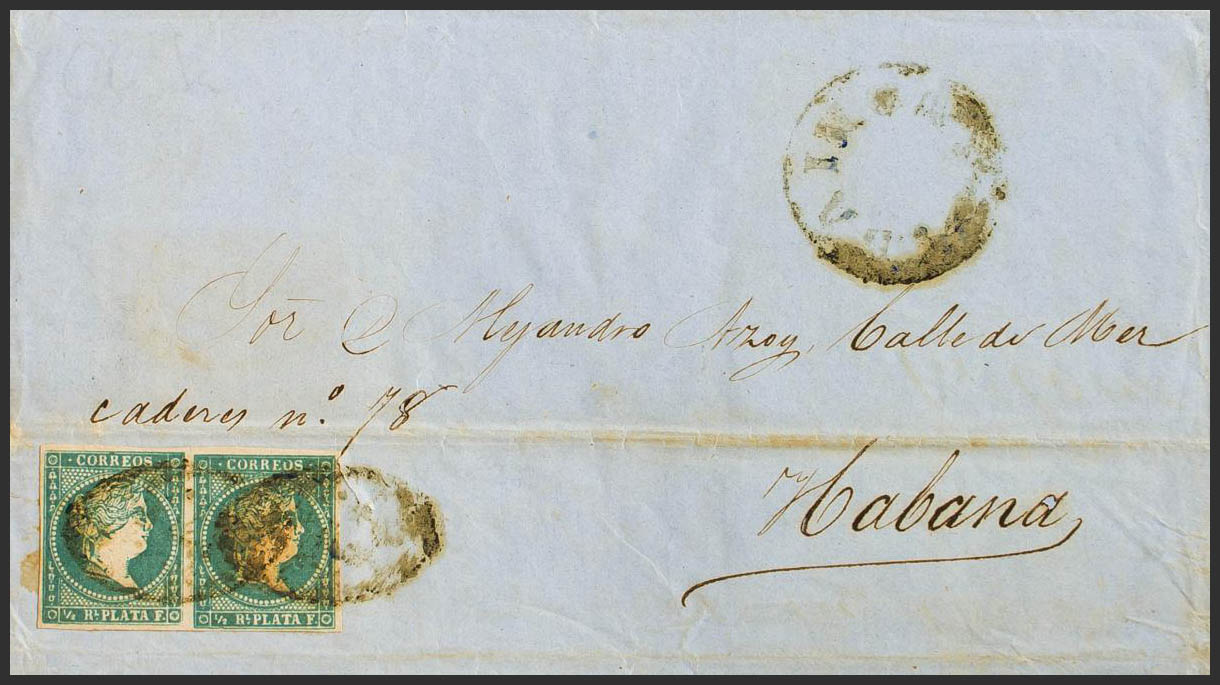 Sor D Alejandro Azoy, Calle de Mer
caderes nº. 78
Habana
CORREOS
½ Rl. PLATA F.
CORREOS
½ Rl. PLATA F.